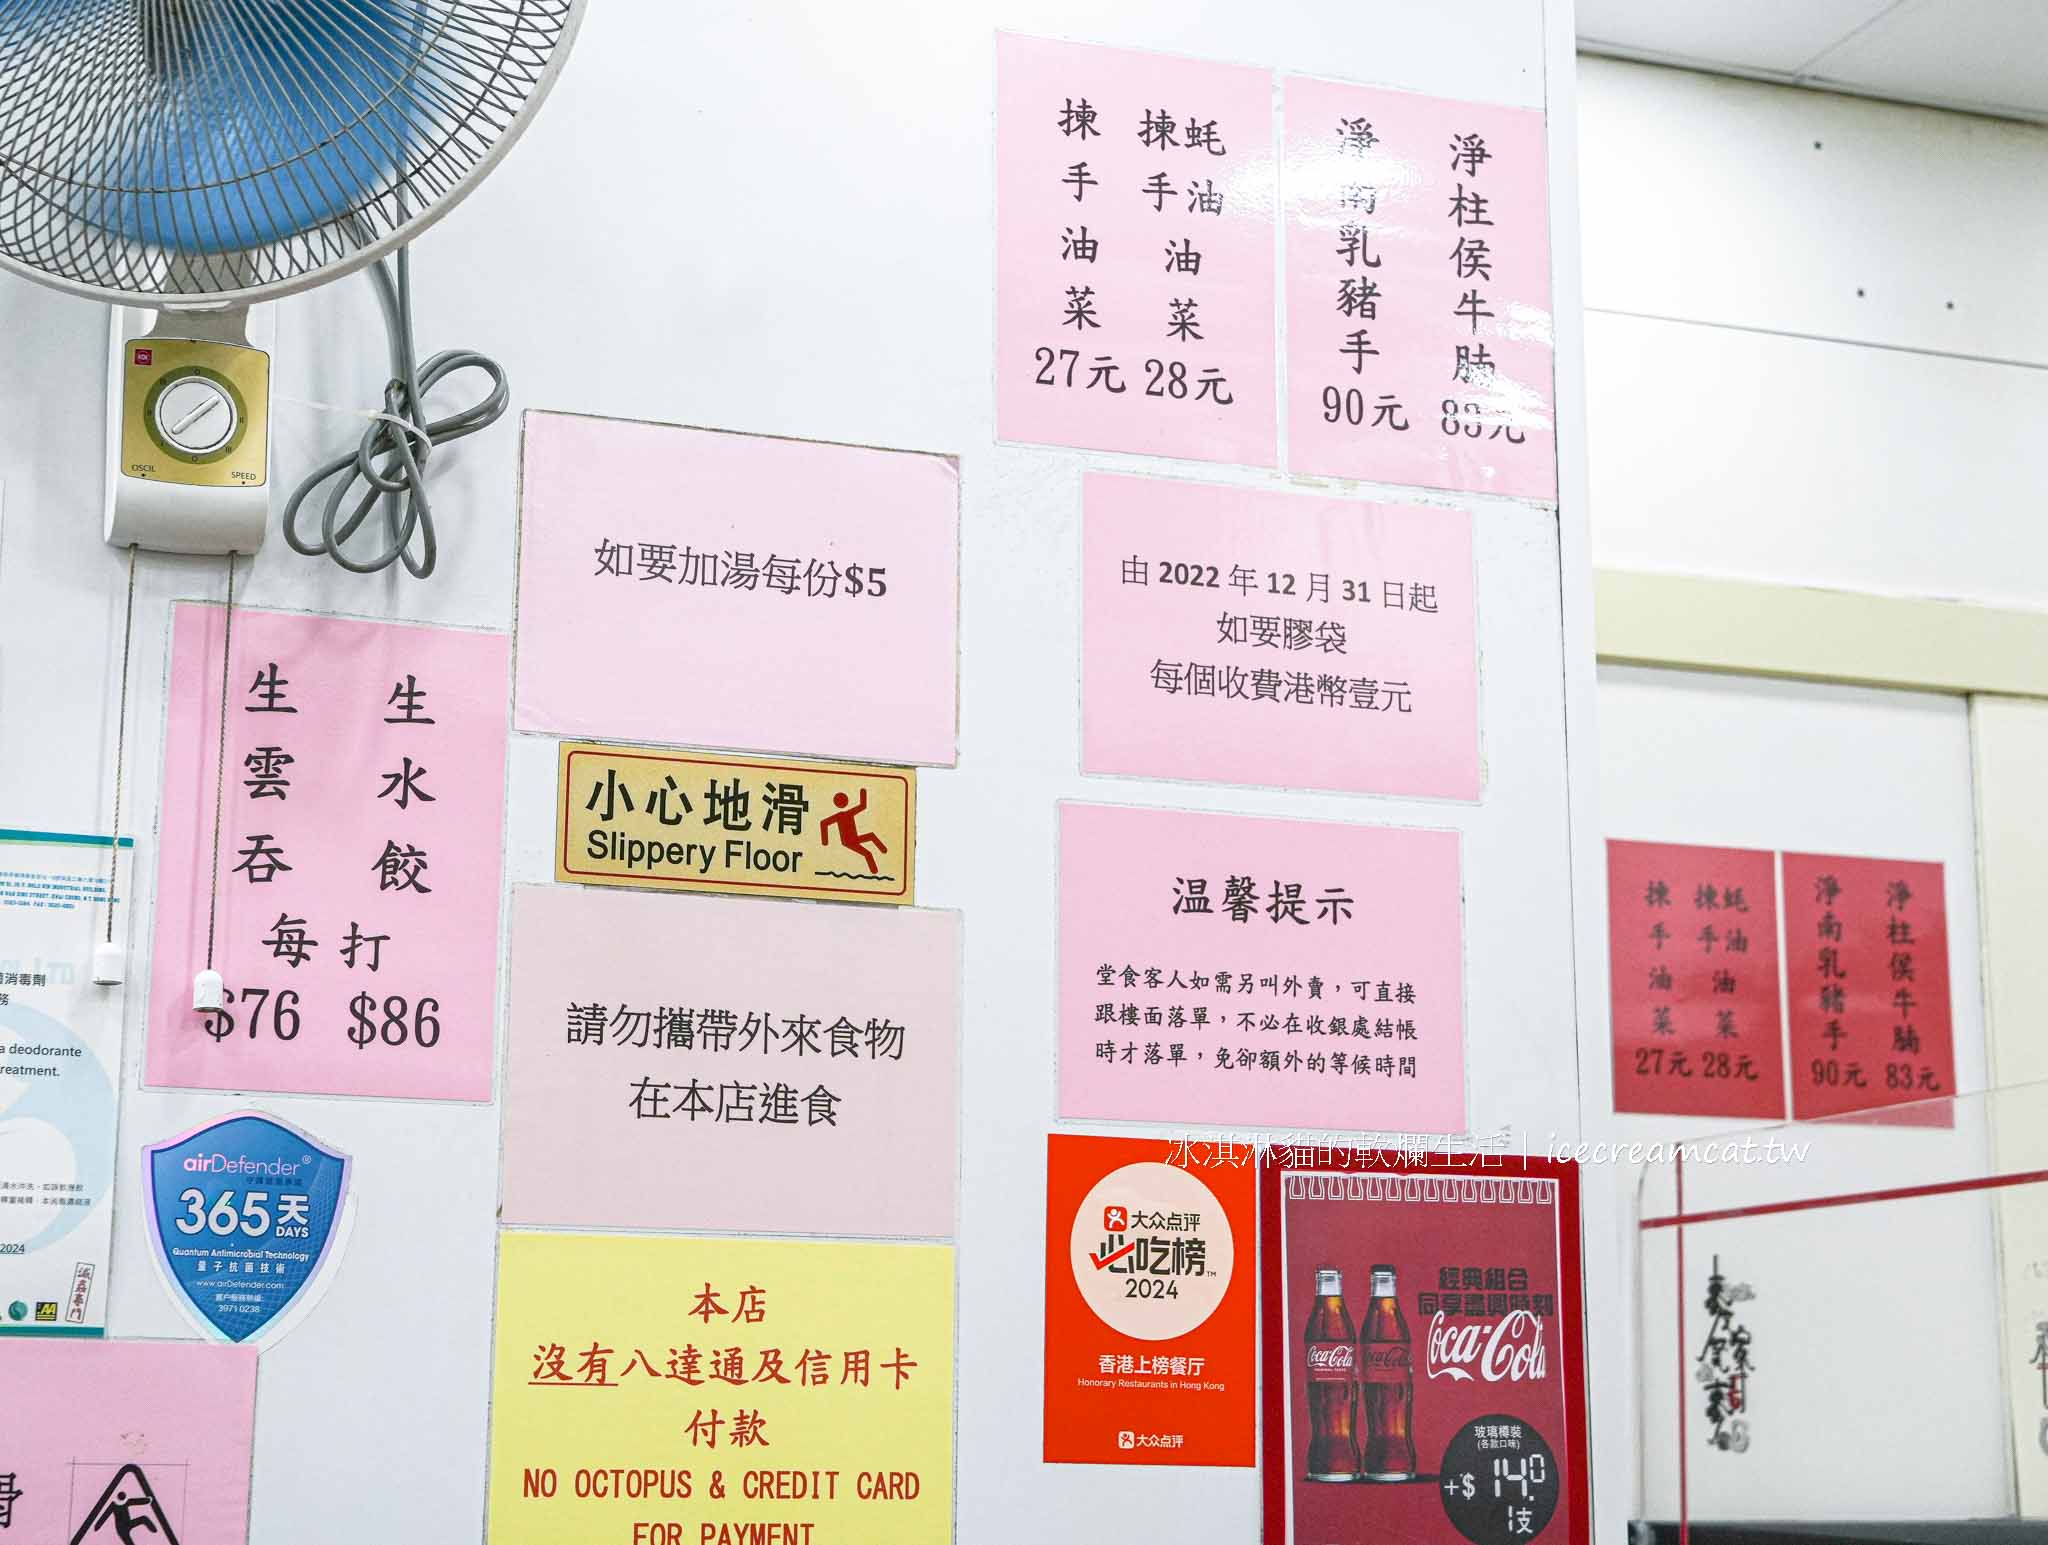 揀手油菜
27元
揀手蚝油油菜
28元
淨南乳豬手
90元
淨柱侯牛腩
83元
OSCIL
SPEED
如要加湯每份$5
由 2022 年 12 月 31 日起
如要膠袋
每個收費港幣壹元
生雲吞
生水餃
每打
$76 $86
小心地滑
Slippery Floor
請勿攜帶外來食物
在本店進食
温馨提示
堂食客人如需另叫外賣，可直接
跟樓面落單，不必在收銀處結帳
時才落單，免卻額外的等候時間
揀手油菜
27元
揀手蚝油油菜
28元
淨南乳豬手
90元
淨柱侯牛腩
83元
冰淇淋貓的軟爛生活 | icecreamcat.tw
消毒劑
a deodorante
reatment.
2024
airDefender®
守護健康專選
365天
DAYS
Quantum Antimicrobial Technology
量子抗菌技術
www.airDefender.com
客户服務熱線:
3971 0238
本店
沒有八達通及信用卡
付款
NO OCTOPUS & CREDIT CARD
FOR PAYMENT
大众点评
必吃榜™
2024
香港上榜餐厅
Honorary Restaurants in Hong Kong
大众点评
經典組合
同享盡興時刻
Coca-Cola
Coca-Cola
Coca-Cola
玻璃樽裝
(各款口味)
+$14.0
1支
滑